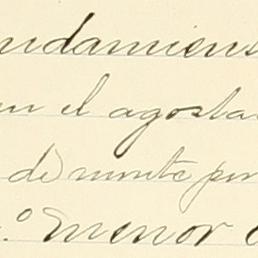 ndamiens
en el agosta
de monte por
o menor